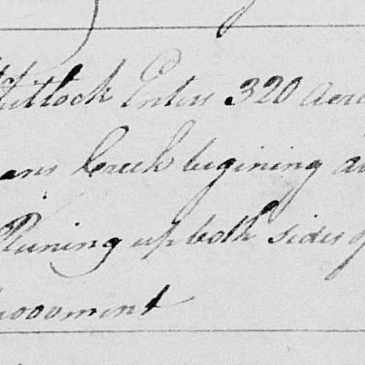 Titlock Enters 320 Acre
ans Creek begining a
Runing up both sides o
provement